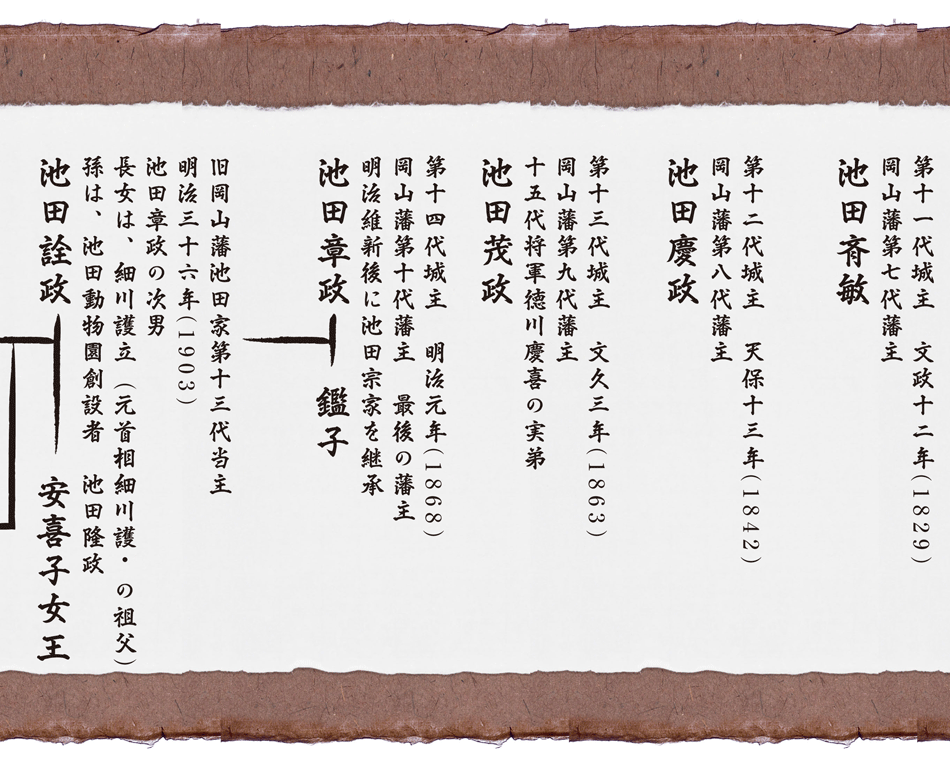 第十一代城主　文政十二年(1829)
岡山藩第七代藩主
池田斉敏
第十二代城主　天保十三年(1842)
岡山藩第八代藩主
池田慶政
第十三代城主　文久三年(1863)
岡山藩第九代藩主
十五代将軍徳川慶喜の実弟
池田茂政
第十四代城主　明治元年(1868)
岡山藩第十代藩主　最後の藩主
明治維新後に池田宗家を継承
池田章政　鑑子
旧岡山藩池田家第十三代当主
明治三十六年(1903)
池田章政の次男
長女は、細川護立（元首相細川護・の祖父）
孫は、池田動物園創設者　池田隆政
池田詮政　安喜子女王